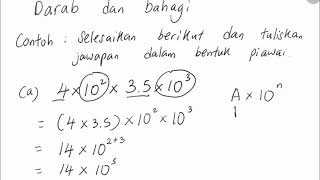 Darab dan bahagi
Contoh : Selesaikan berikut dan tuliskan
jawapan dalam bentuk piawai.
(a) 4 × 10² × 3.5 × 10³
= (4 × 3.5) × 10² × 10³
= 14 × 10²⁺³
= 14 × 10⁵
A × 10ⁿ